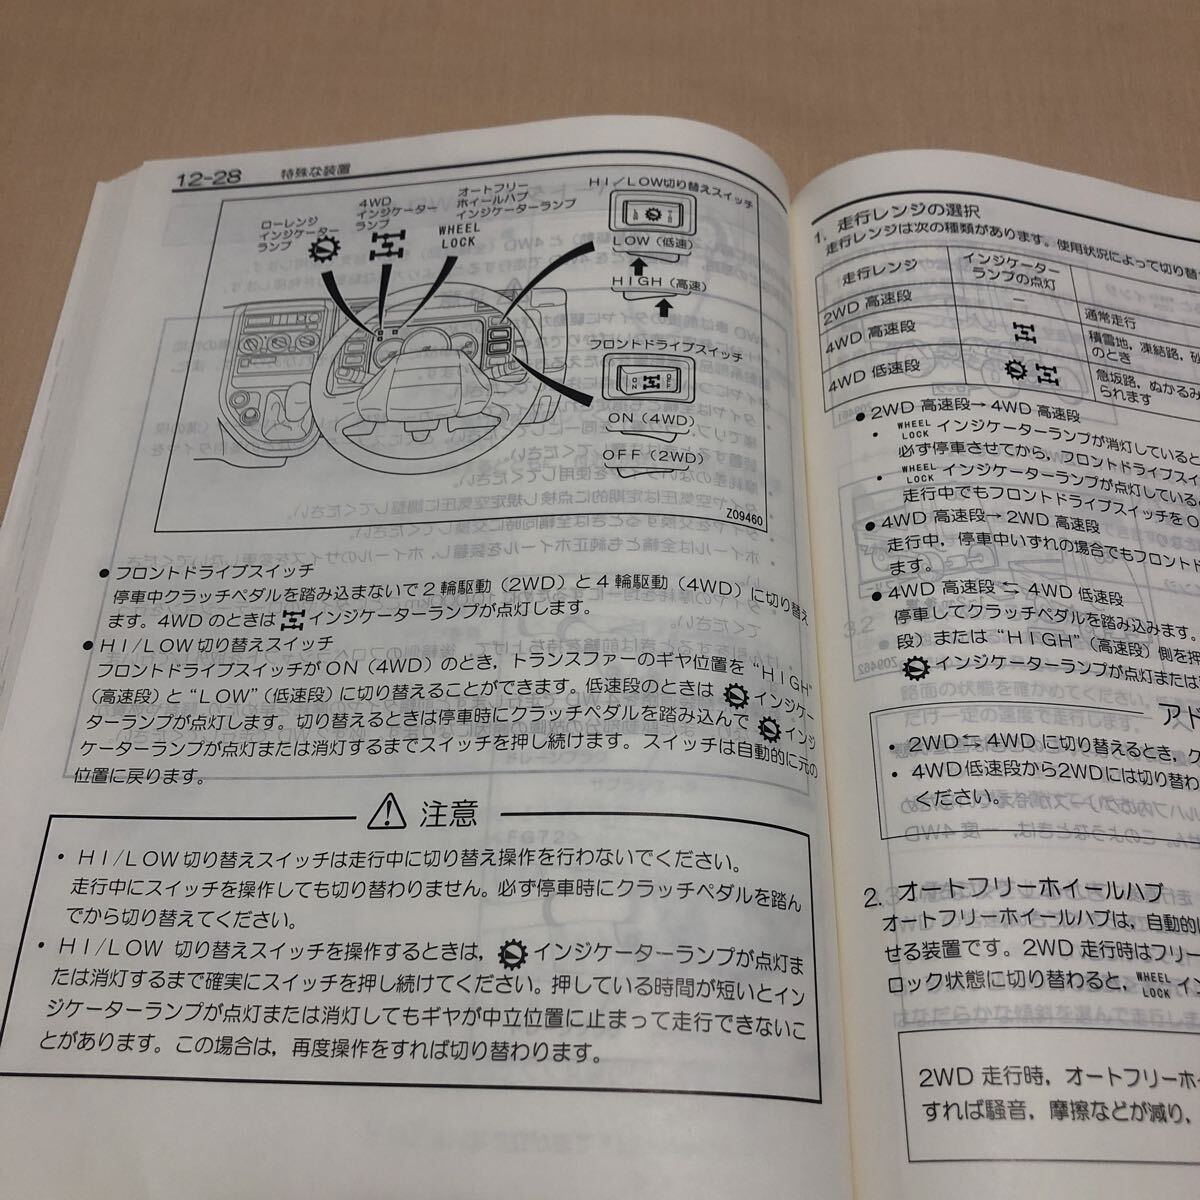 12-28 特殊な装置
ローレンジ
インジケーター
ランプ
4WD
インジケーター
ランプ
オートフリー
ホイールハブ
インジケーターランプ
WHEEL
LOCK
HI/LOW切り替えスイッチ
LOW（低速）
HIGH（高速）
フロントドライブスイッチ
ON OFF
ON（4WD）
OFF（2WD）
Z09460
● フロントドライブスイッチ
停車中クラッチペダルを踏み込まないで2輪駆動（2WD）と4輪駆動（4WD）に切り替え
ます。4WDのときは インジケーターランプが点灯します。
● HI/LOW切り替えスイッチ
フロントドライブスイッチがON（4WD）のとき，トランスファーのギヤ位置を“HIGH”
（高速段）と“LOW”（低速段）に切り替えることができます。低速段のときは インジケー
ターランプが点灯します。切り替えるときは停車時にクラッチペダルを踏み込んで インジ
ケーターランプが点灯または消灯するまでスイッチを押し続けます。スイッチは自動的に元の
位置に戻ります。
注意
・HI/LOW切り替えスイッチは走行中に切り替え操作を行わないでください。
走行中にスイッチを操作しても切り替わりません。必ず停車時にクラッチペダルを踏ん
でから切り替えてください。
・HI/LOW 切り替えスイッチを操作するときは， インジケーターランプが点灯ま
たは消灯するまで確実にスイッチを押し続けてください。押している時間が短いとイン
ジケーターランプが点灯または消灯してもギヤが中立位置に止まって走行できないこ
とがあります。この場合は，再度操作をすれば切り替わります。
1. 走行レンジの選択
走行レンジは次の種類があります。使用状況によって切り替
走行レンジ
インジケーター
ランプの点灯
2WD 高速段
－
通常走行
4WD 高速段
積雪地，凍結路，砂
のとき
4WD 低速段
急坂路，ぬかるみ
られます
● 2WD 高速段→ 4WD 高速段
・WHEEL LOCK インジケーターランプが消灯していると
必ず停車させてから，フロントドライブスイ
・WHEEL LOCK インジケーターランプが点灯している
走行中でもフロントドライブスイッチをO
● 4WD 高速段→ 2WD 高速段
走行中，停車中いずれの場合でもフロント
ます。
● 4WD 高速段 ⇆ 4WD 低速段
停車してクラッチペダルを踏み込みます。
段）または“HIGH”（高速段）側を押
インジケーターランプが点灯または
アド
・2WD ⇆ 4WD に切り替えるとき，ク
・4WD低速段から2WDには切り替わ
ください。
2. オートフリーホイールハブ
オートフリーホイールハブは，自動的
せる装置です。2WD 走行時はフリー
ロック状態に切り替わると，WHEEL LOCK イン
2WD 走行時，オートフリーホ
すれば騒音，摩擦などが減り，